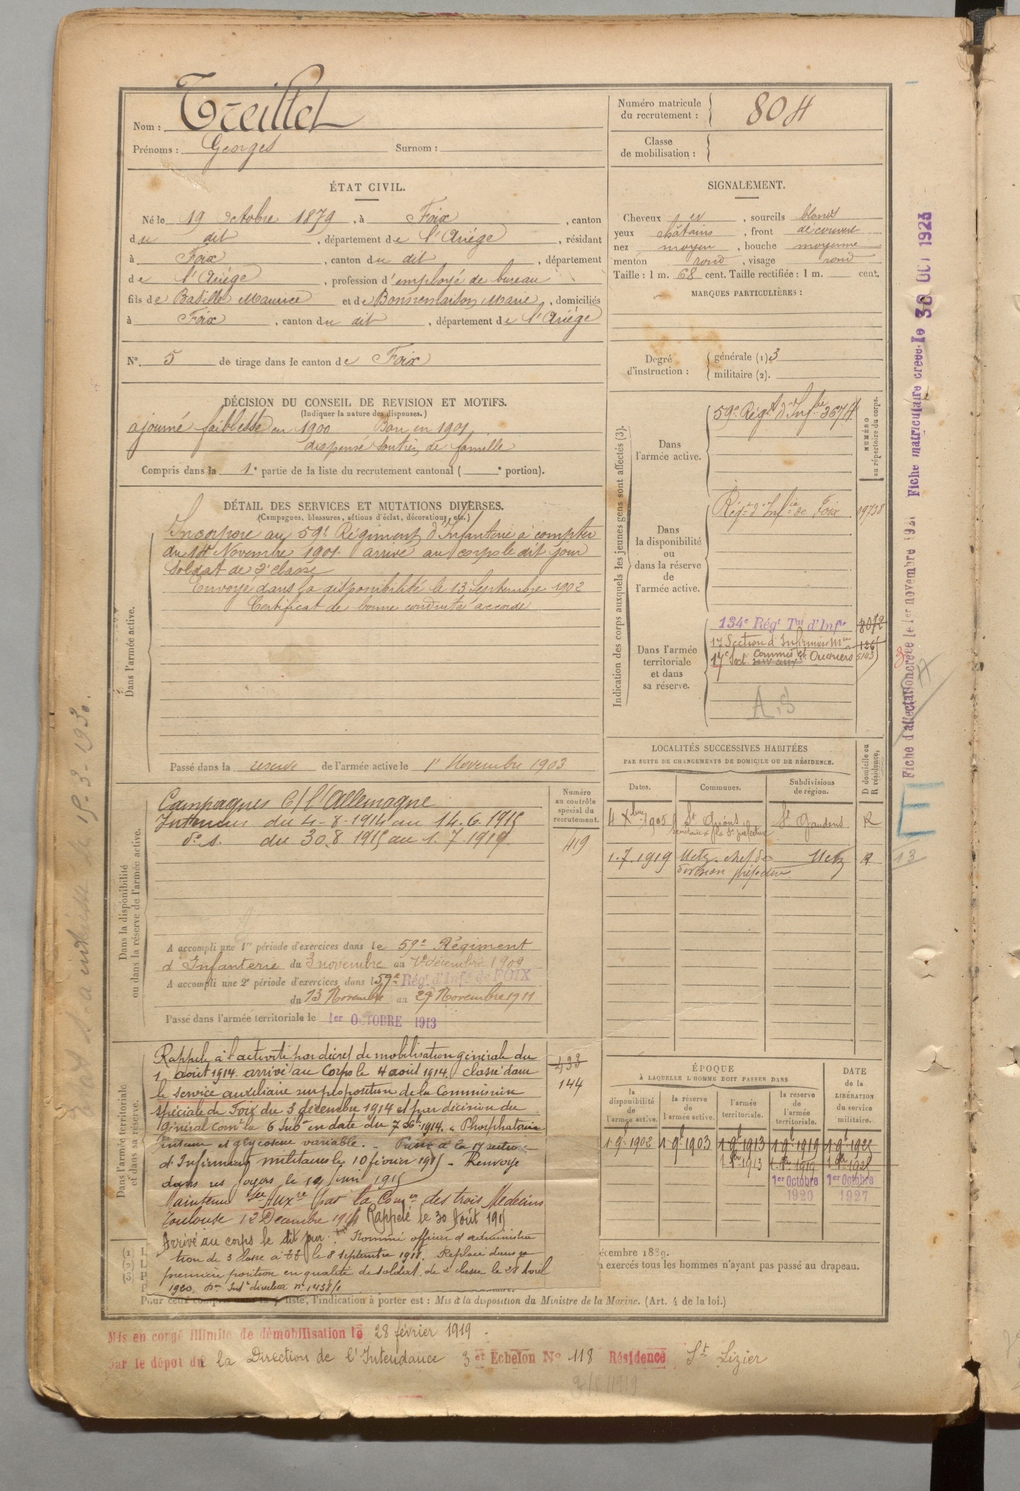 Nom : Treillet
Prénoms : Georges Surnom :
Numéro matricule du recrutement : 804
Classe de mobilisation :
ÉTAT CIVIL.
Né le 19 octobre 1879, à Foix, canton
du dit, département de l'Ariège, résidant
à Foix, canton du dit, département
de l'Ariège, profession d'employé de bureau
fils de Basille Maurice et de Bonnemaison Marie, domiciliés
à Foix, canton du dit, département de l'Ariège
N° 5 de tirage dans le canton de Foix
SIGNALEMENT.
Cheveux , sourcils blonds
yeux châtains, front découvert
nez moyen, bouche moyenne
menton rond, visage rond
Taille : 1 m. 68 cent. Taille rectifiée : 1 m. cent.
MARQUES PARTICULIÈRES :
Degré d'instruction : générale (1) 3
militaire (2).
DÉCISION DU CONSEIL DE REVISION ET MOTIFS.
(Indiquer la nature des dispenses.)
ajourné faiblesse en 1900 Bon en 1901
dispensé soutien de famille
Compris dans la 1e partie de la liste du recrutement cantonal ( e portion).
DÉTAIL DES SERVICES ET MUTATIONS DIVERSES.
(Campagnes, blessures, actions d'éclat, décorations, etc.)
Dans l'armée active.
Incorporé au 59e Régiment d'Infanterie à compter
du 14 Novembre 1901 arrivé au corps le dit jour
soldat de 2e classe
Envoyé dans la disponibilité le 13 Septembre 1902
Certificat de bonne conduite accordé
Passé dans la réserve de l'armée active le 1er Novembre 1903
Indication des corps auxquels les jeunes gens sont affectés (3).
NUMÉRO au répertoire du corps.
Dans l'armée active.
59e Régt d'Infrie 3674
Dans la disponibilité ou dans la réserve de l'armée active.
Régt d'Infie de Foix 19738
Dans l'armée territoriale et dans sa réserve.
134e Régt Tal d'Infie
17 Section d'Infirmiers Mres
17e Sect Commis et Ouvriers
A.S
LOCALITÉS SUCCESSIVES HABITÉES
PAR SUITE DE CHANGEMENTS DE DOMICILE OU DE RÉSIDENCE.
Dates. Communes. Subdivisions de région. D domicile ou R résidence.
4 Xbre 1905 St Gaudens R
1.7.1919 Metz chef de division préfecture Metz R
Dans la disponibilité ou dans la réserve de l'armée active.
Numéro au contrôle spécial du recrutement.
419
Campagnes C/ l'Allemagne
Intérieur du 4-8-1914 au 14.6.1915
do du 30.8.1915 au 1.7.1919
A accompli une 1re période d'exercices dans le 59e Régiment
d'Infanterie du 3 novembre au décembre 1909
A accompli une 2e période d'exercices dans le 59e Rég. d'Infie de FOIX
du 13 Novembre au 29 Novembre 1911
Passé dans l'armée territoriale le 1er OCTOBRE 1913
Dans l'armée territoriale et dans sa réserve.
144
Rappelé à l'activité par décret de mobilisation générale du
1 août 1914 arrivé au Corps le 4 août 1914 classé dans
le service auxiliaire sur proposition de la Commission
spéciale de Foix du 3 décembre 1914 et par décision du
général comt la 6 Subon en date du 7 Xbre 1914. Phosphaturie
et glycosurie variable. Passé à la 17 section
d'Infirmiers militaires le 10 février 1915 - Renvoyé
dans ses foyers le
Maintenu Sce Auxre par la Comon des trois Médecins
Toulouse 13 Décembre Rappelé le 30 Août 1915
Arrivé au corps le dit jour. Nommé officier d'administra
tion de 3 classe à TT le 8 septembre 1918. Replacé dans sa
première position en qualité de soldat de 2 classe le 28 Avril
1920.
ÉPOQUE
À LAQUELLE L'HOMME DOIT PASSER DANS
la disponibilité de l'armée active. la réserve de l'armée active. l'armée territoriale. la réserve de l'armée territoriale. DATE de la LIBÉRATION du service militaire.
1 9bre 1902 1 9bre 1903 1 9bre 1913 1 9bre 1919
1er Octobre 1920 1er Octobre 1927
décembre 1889.
exercés tous les hommes n'ayant pas passé au drapeau.
liste, l'indication à porter est : Mis à la disposition du Ministre de la Marine. (Art. 4 de la loi.)
Mis en congé illimité de démobilisation le 28 février 1919.
par le dépôt de la Direction de l'Intendance 3e Echelon No 118 Résidence St Lizier
Fiche d'affectation créée le 1er novembre
Fiche matriculaire créée le 30 OCT 1923
13